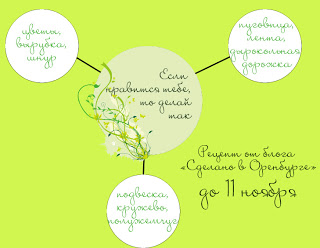 цветы,
вырубка,
шнур
пуговица,
лента,
дырокольная
дорожка
Если
нравится тебе,
то делай
так
Рецепт от блога
«Сделано в Оренбурге»
до 11 ноября
подвеска,
кружево,
полужемчуг